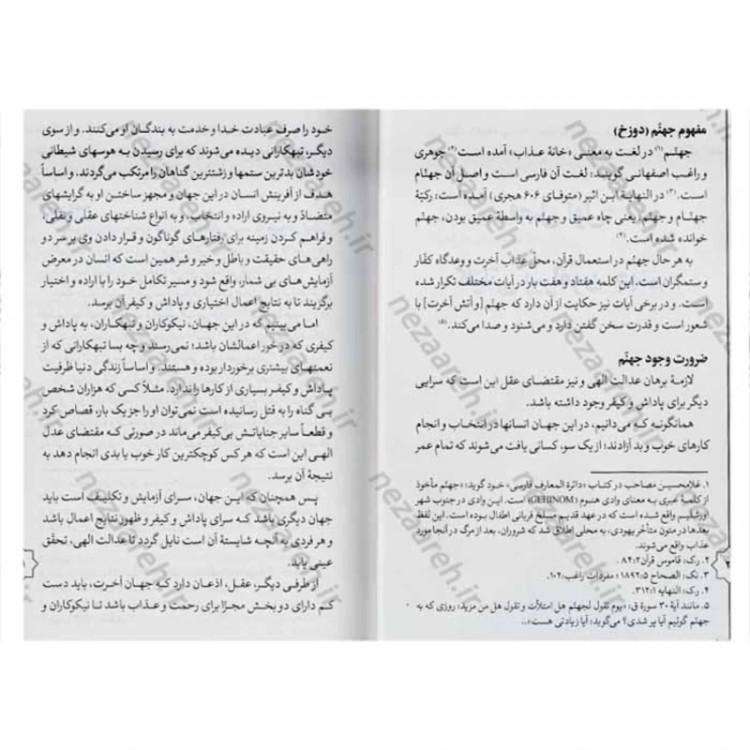 مفهوم جهنّم (دوزخ)
جهنّم(۱) در لغت به معنیِ «خانهٔ عذاب» آمده است(۲) جوهری
و راغب اصفهانی گویند: لغت آن فارسی است و اصل آن جهنّام
است.(۳) در النهایهٔ ابن اثیر (متوفای ۶۰۶ هجری) آمده است: رکیّهٔ
جهنّام و جهنّم، یعنی چاه عمیق و جهنّم به واسطهٔ عمیق بودن، جهنّم
خوانده شده است.(۴)
به هر حال جهنّم در استعمال قرآن، محلّ عذاب آخرت و وعدگاه کفّار
و ستمگران است. این کلمه هفتاد و هفت بار در آیات مختلف تکرار شده
است. و در برخی آیات نیز حکایت از آن دارد که جهنّم [و آتش آخرت] با
شعور است و قدرت سخن گفتن دارد و می‌شنود و صدا می‌کند.(۵)
ضرورت وجود جهنّم
لازمهٔ برهان عدالت الهی و نیز مقتضای عقل این است که سرایی
دیگر برای پاداش و کیفر وجود داشته باشد.
همانگونه که می‌دانیم، در این جهان انسانها در انتخاب و انجام
کارهای خوب و بد آزادند؛ از یک سو، کسانی یافت می‌شوند که تمام عمر
۱. غلامحسین مصاحب در کتاب «دائرة المعارف فارسی» خود گوید: «جهنّم مأخوذ
از کلمهٔ عبری به معنای وادی هنوم (GEHINOM) است. این وادی در جنوب شهر
اورشلیم واقع شده است که در عهد قدیم مسلخ قربانی اطفال بوده است. این لفظ
بعدها در متون متأخّر یهودی، به محلی اطلاق شد که شروران، بعد از مرگ در آنجا مورد
عذاب واقع می‌شوند.
۲. رک: قاموس قرآن ۲: ۸۴.
۳. نک: الصحاح ۵: ۱۸۹۲؛ مفردات راغب: ۱۰۲.
۴. رک: النهایه ۱: ۳۱۲.
۵. مانند آیهٔ ۳۰ سورهٔ ق: «یوم نقول لجهنّم هل امتلأت و تقول هل من مزید: روزی که به
جهنّم گوئیم آیا پر شدی؟ می‌گوید: آیا زیادتی هست»..
خود را صرف عبادت خدا و خدمت به بندگان او می‌کنند. و از سوی
دیگر، تبهکارانی دیده می‌شوند که برای رسیدن به هوسهای شیطانی
خودشان بدترین ستمها و زشت‌ترین گناهان را مرتکب می‌گردند. و اساساً
هدف از آفرینش انسان در این جهان و مجهز ساختن او به گرایشهای
متضادّ و به نیروی اراده و انتخاب، و به انواع شناختهای عقلی و نقلی،
و فراهم کردن زمینه برای رفتارهای گوناگون و قرار دادن وی بر سر دو
راهی‌های حقیقت و باطل و خیر و شر همین است که انسان در معرض
آزمایش‌های بی شمار، واقع شود و مسیر تکامل خود را با اراده و اختیار
برگزیند تا به نتایج اعمال اختیاری و پاداش و کیفر آن برسد.
اما می‌بینیم که در این جهان، نیکوکاران و تبهکاران، به پاداش و
کیفری که در خور اعمالشان باشد؛ نمی‌رسند و چه بسا تبهکارانی که از
نعمتهای بیشتری برخوردار بوده و هستند. و اساساً زندگی دنیا ظرفیت
پاداش و کیفر بسیاری از کارها را ندارد. مثلاً کسی که هزاران شخص
بی گناه را به قتل رسانیده است نمی‌توان او را جز یک بار، قصاص کرد
و قطعاً سایر جنایاتش بی‌کیفر می‌ماند در صورتی که مقتضای عدل
الهی این است که هر کس کوچکترین کار خوب یا بدی انجام دهد به
نتیجهٔ آن برسد.
پس همچنان که این جهان، سرای آزمایش و تکلیف است باید
جهان دیگری باشد که سرای پاداش و کیفر و ظهور نتایج اعمال باشد
و هر فردی به آنچه شایستهٔ آن است نایل گردد تا عدالت الهی، تحقّق
عینی یابد.
از طرفی دیگر، عقل، اذعان دارد که جهان آخرت، باید دست
کم دارای دو بخش مجزّا برای رحمت و عذاب باشد تا نیکوکاران و
nezaareh.ir